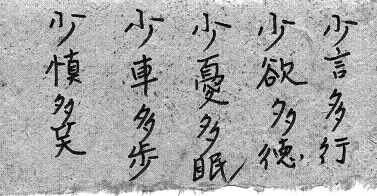 少言多行
少欲多德
少憂多眠
少車多步
少慎多笑